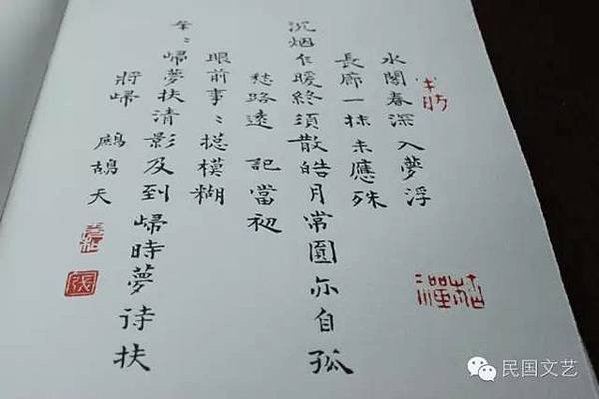 水閣春深入夢浮
長廊一抹未應殊
沉烟乍暖終須散皓月常圓亦自孤
愁路遠 記當初
眼前事〻揔模糊
年〻歸夢扶清影及到歸時夢待扶
將歸 鷓鴣天
民国文艺